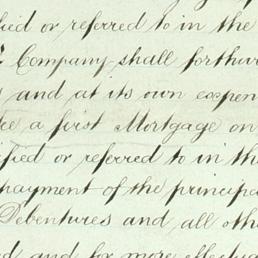 fied or referred to in the
Company shall forthw
and at its own expen
a first Mortgage on
ified or referred to in th
payment of the principa
Debentures and all oth
and for more effectua